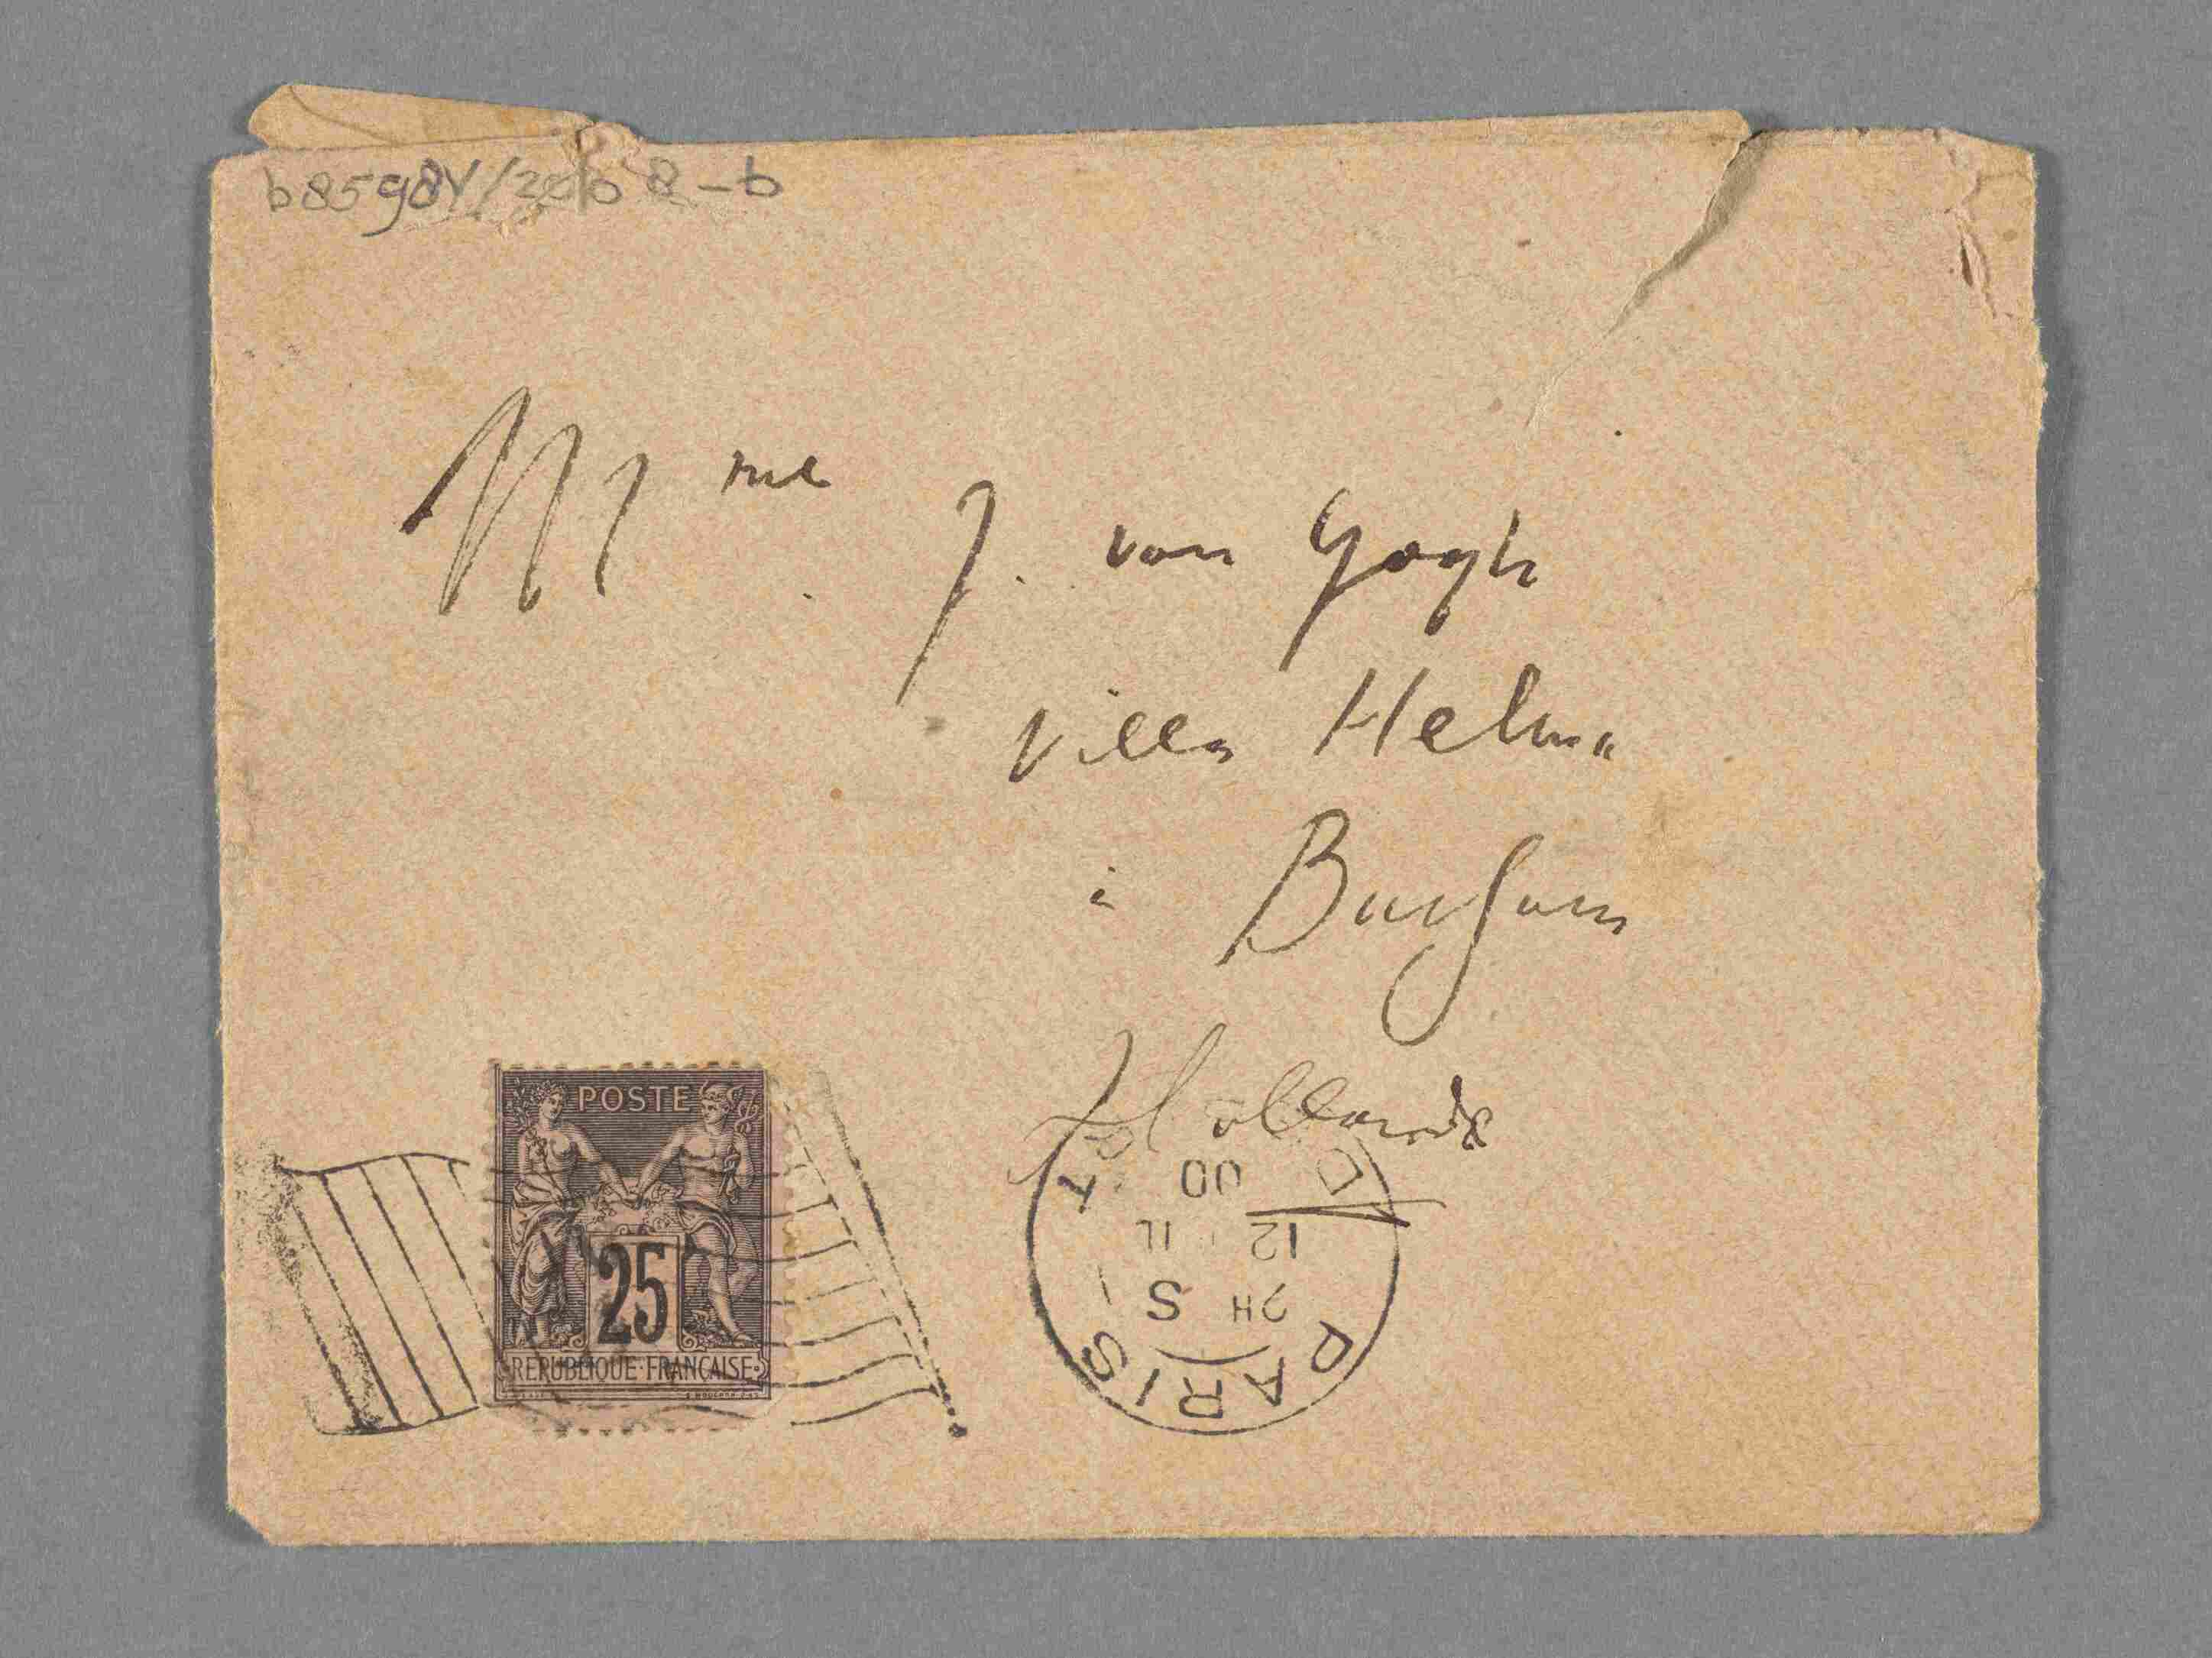 b8598V/2006 8-b
Mme J. van Gogh
Villa Helma
à Bussum
Hollande
POSTE
25
REPUBLIQUE·FRANÇAISE
PARIS
2H S
12
00